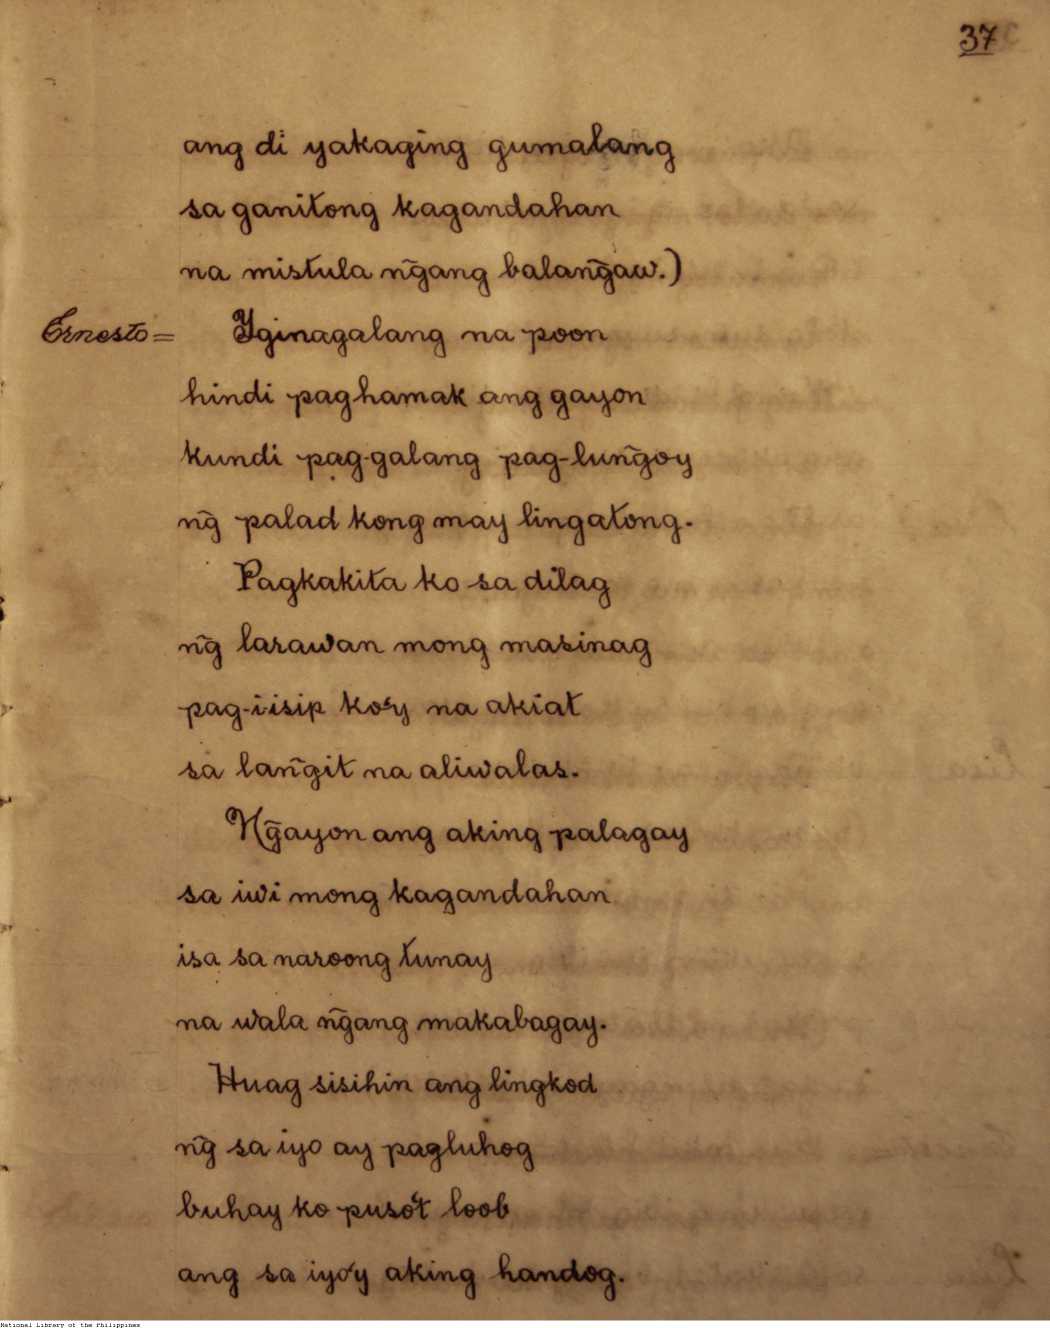 37
ang di yakaging gumalang
sa ganitong kagandahan
na mistula ñg̃ang balang̃aw.)
Ernesto= Yginagalang na poon
hindi paghamak ang gayon
kundi pag-galang pag-lung̃oy
ñg palad kong may lingatong.
Pagkakita ko sa dilag
ñg larawan mong masinag
pag-iisip ko'y na akiat
sa lang̃it na aliwalas.
Ng̃ayon ang aking palagay
sa iwi mong kagandahan
isa sa naroong tunay
na wala ng̃ang makabagay.
Huag sisihin ang lingkod
ñg sa iyo ay pagluhog
buhay ko puso't loob
ang sa iyo'y aking handog.
National Library of the Philippines